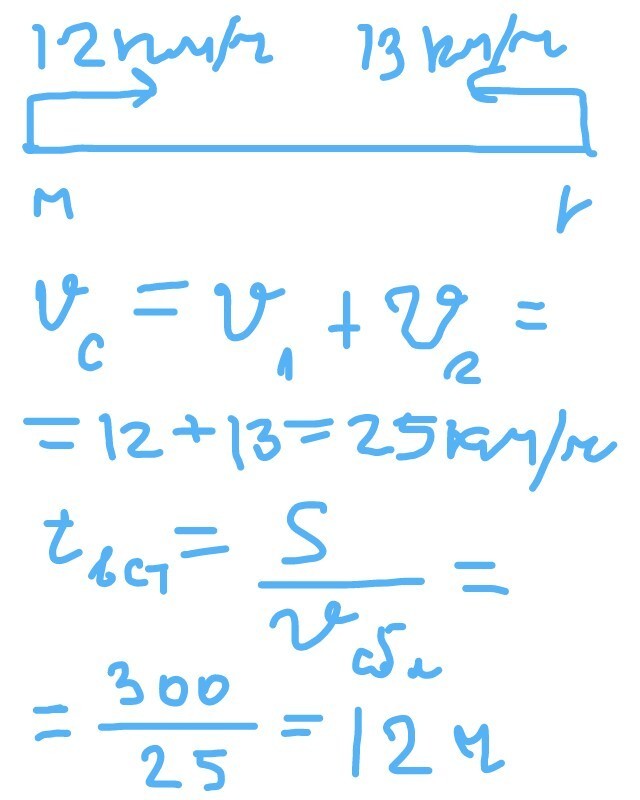 12 км/ч 13 км/ч
М Г
v_с = v_1 + v_2 =
= 12 + 13 = 25 км/ч
t_вст = S / v_сбл =
= 300 / 25 = 12 ч